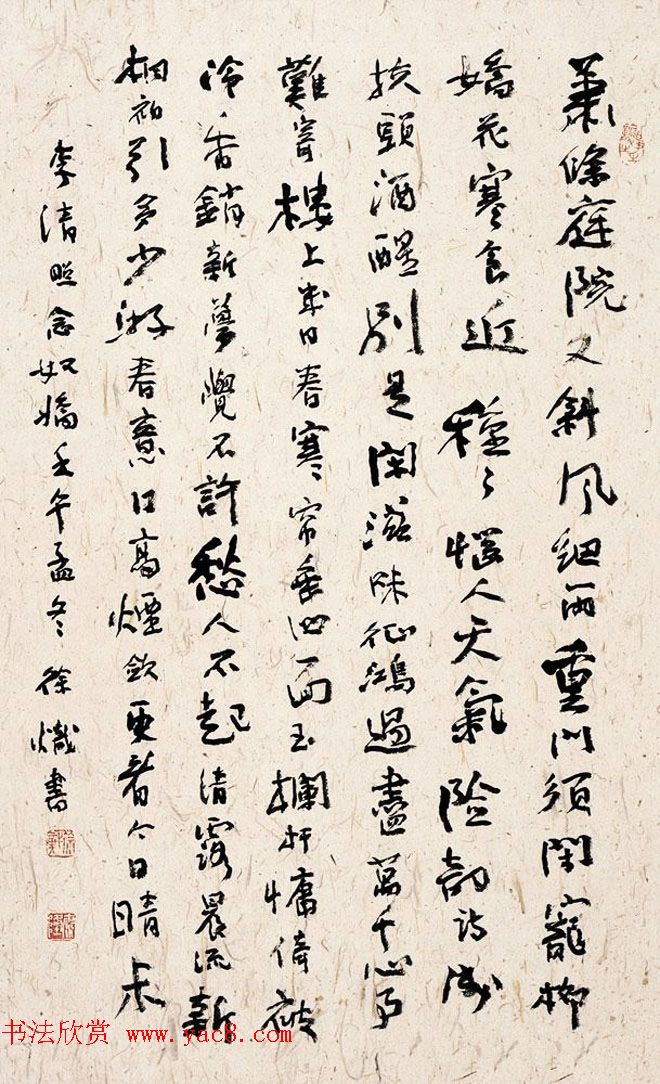 蕭條庭院又斜風細雨重門須閑寵柳
嬌花寒食近種々惱人天氣險韻詩成
扶頭酒醒別是閑滋味征鴻過盡萬千心事
難寄樓上幾日春寒帘垂四面玉攔杆慵倚被
冷香銷新夢覺不許愁人不起清露晨流新
桐初引多少游春意日高煙斂更看今日晴未
李清照念奴嬌壬午孟冬徐熾書
书法欣赏 www.yac8.com